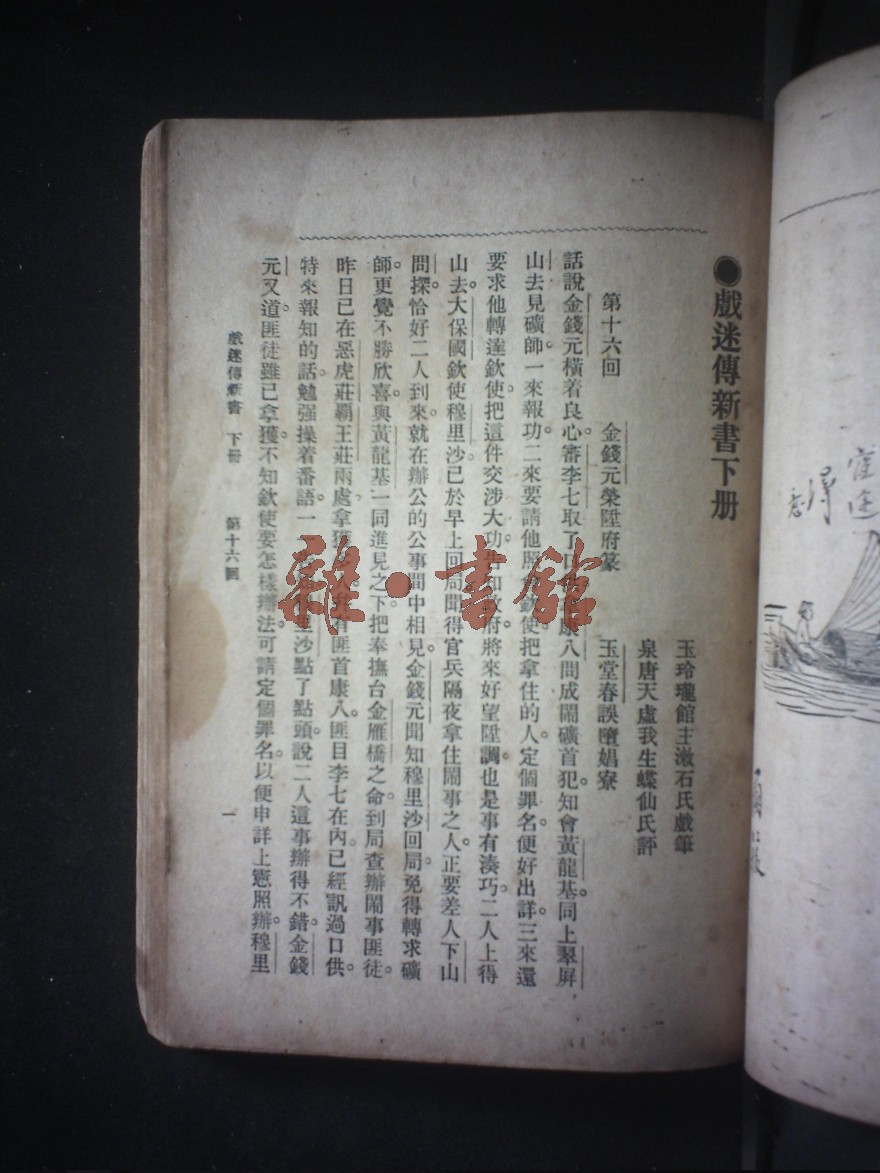 ●戲迷傳新書下册
玉玲瓏館主漱石氏戲筆
泉唐天虛我生蝶仙氏評
第十六回 金錢元榮陞府篆 玉堂春誤墮娼寮
話說金錢元橫着良心。審李七取了口 康八問成鬧礦首犯。知會黃龍基。同上翠屏
山去見礦師。一來報功。二來要請他照 欽使把拿住的人。定個罪名。便好出詳。三來還
要求他轉達欽使。把這件交涉大功。告知政府。將來好望陞調。也是事有湊巧。二人上得
山去。大保國欽使穆里沙已於早上回局。聞得官兵隔夜拿住鬧事之人。正要差人下山
問探。恰好二人到來。就在辦公的公事間中相見。金錢元聞知穆里沙回局。免得轉求礦
師。更覺不勝欣喜。與黃龍基一同進見之下。把奉撫台金雁橋之命。到局查辦鬧事匪徒。
昨日已在惡虎莊霸王莊兩處。拿獲 人。并有匪首康八。匪目李七在內。已經訊過口供。
特來報知的話。勉强操着番語。一 里沙點了點頭。說二人這事辦得不錯。金錢
元又道。匪徒雖已拿獲。不知欽使要怎樣辦法。可請定個罪名。以便申詳上憲照辦。穆里
戲迷傳新書 下册 第十六回 一
雜·書館